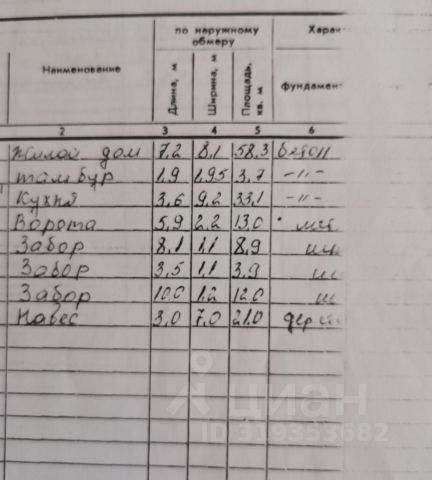 по наружному обмеру
Харак
Наименование
Длина, м
Ширина, м
Площадь, кв. м
фундамен
2 3 4 5 6
Жилой дом 7.2 8.1 58.3 бетон
тамбур 1.9 1.95 3.7 -"-
Кухня 3.6 9.2 33.1 -"-
Ворота 5.9 2.2 13.0
Забор 8.1 1.1 8.9
Забор 3.5 1.1 3.9
Забор 10.0 1.2 12.0
Навес 3.0 7.0 21.0 дер
циан
ID 319353682